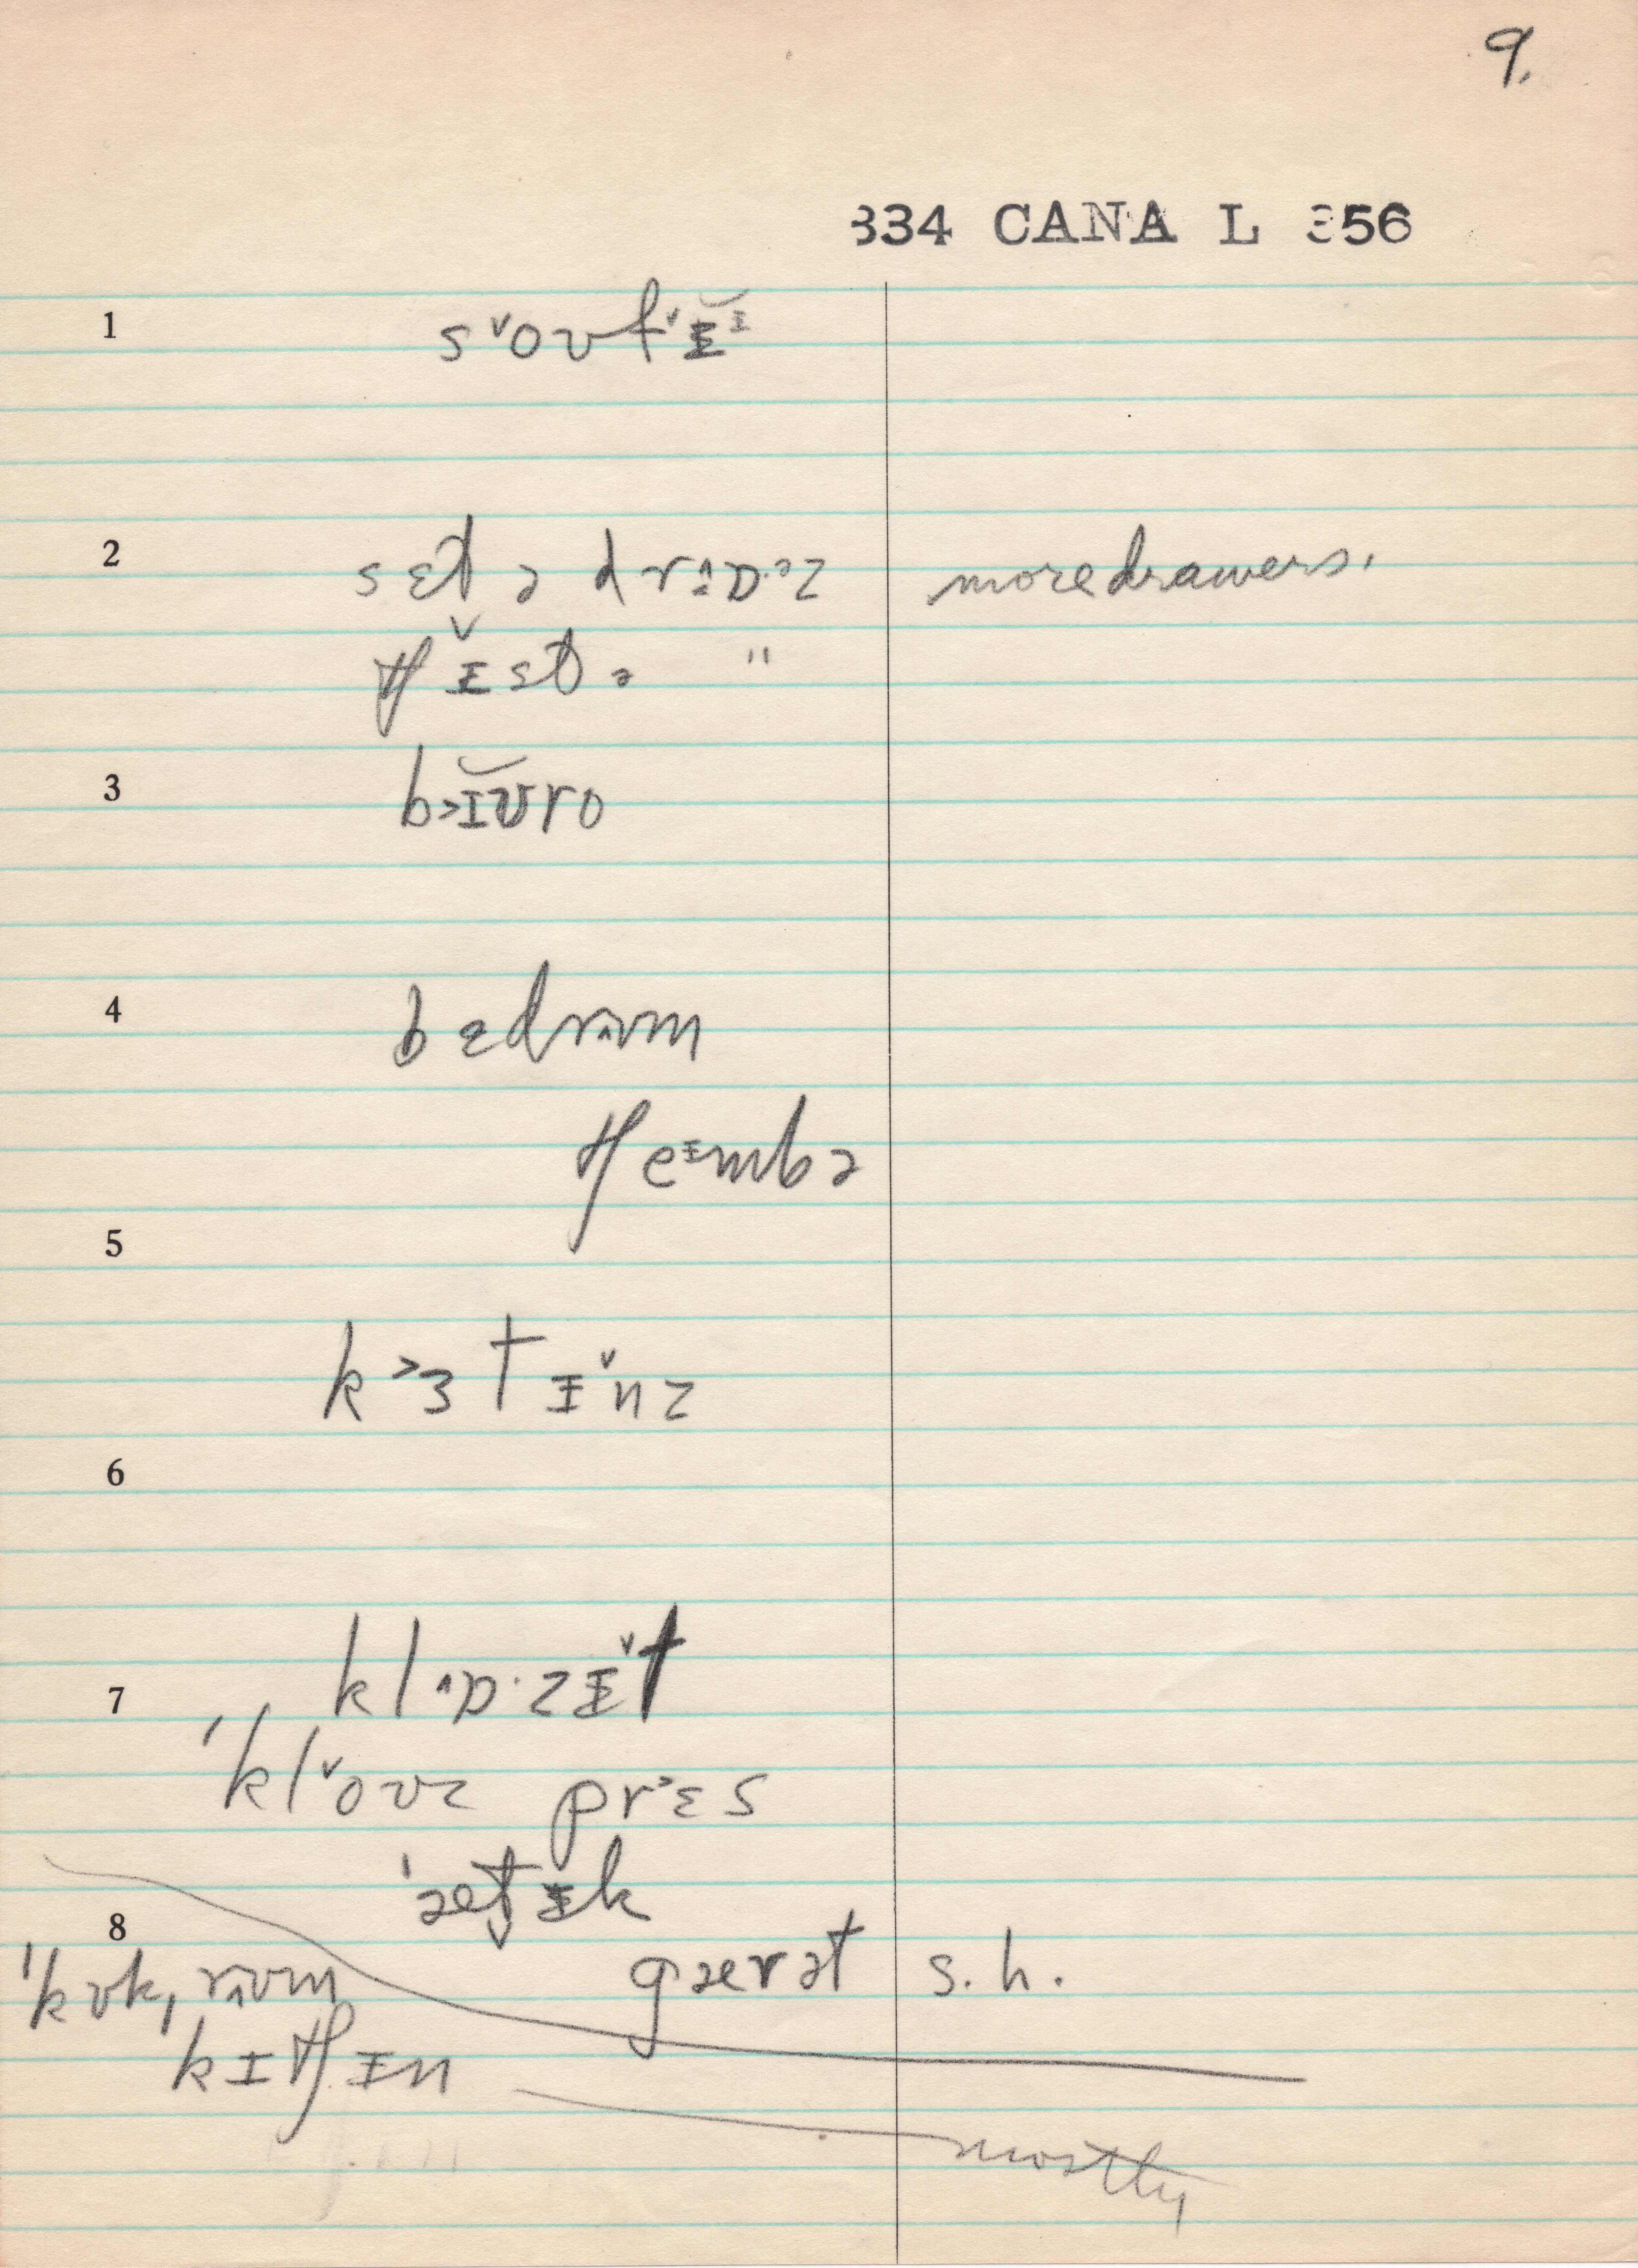 9.
334 CANA L 356
1 s˅oʊfᵛɪ̵̆ᶦ
2 sɛt ə drɒ·ᵊz more drawers.
tʃɪ̵̌st ə "
3 b˃ɪ̆ʊro
4 bɛdrʌʊm
tʃeɪmbə
5
k˃ɜtɪ̵ᵛnz
6
7 kl^ɒ·zɪ̵ᵛt
ˈkl˅oʊz pr˃ɛs
8 ˈæt̬ɪ̵k
gærət s.h.
ˈkʊkˌrʌʊm
kɪtʃɪ̵n
mostly